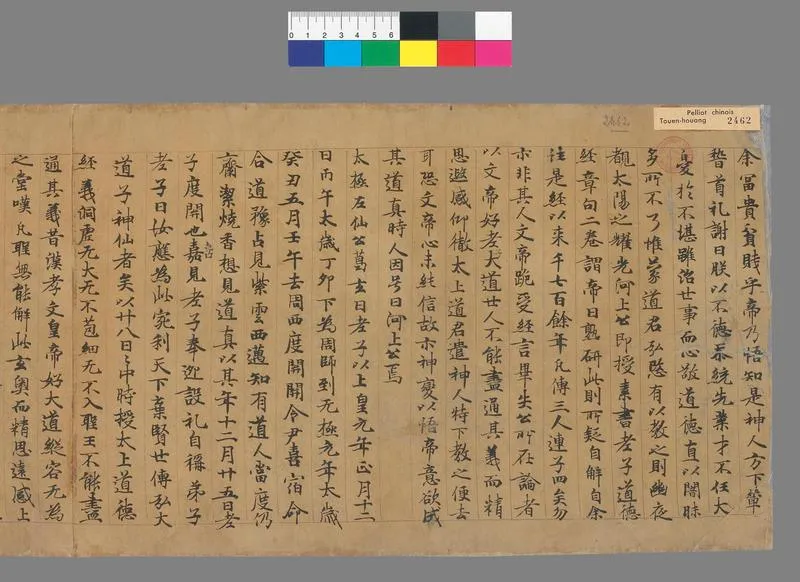 Pelliot chinois
Touen-houang 2462
2462
余冨貴貧賎乎帝乃悟知是神人方下輦
稽首礼謝曰朕以不德忝統先業才不任大
憂於不堪雖治世事而心敬道德直以闇昧
多所不了惟蒙道君弘愍有以教之則幽夜
覩太陽之耀光河上公即授素書老子道德
經章句二卷謂帝曰熟研此則所疑自解自余
註是經以來千七百餘年凡傳三人連子四矣勿
示非其人文帝跪受經言畢失公所在論者
以文帝好老大道世人不能盡通其義而精
思遐感仰徹太上道君遣神人特下教之便去
耳恐文帝心未純信故示神變以悟帝意欲成
其道真時人因号曰河上公焉
太極左仙公葛玄曰老子以上皇元年正月十二
日丙午太歲丁卯下為周師到无極元年太歲
癸丑五月壬午去周西度關關令尹喜宿命
合道豫占見紫雲西邁知有道人當度仍
齋潔燒香想見道真以其年十二月廿五日老
子度關也喜見老子奉迎設礼自稱弟子
老子曰汝應為此宛利天下棄賢世傳弘大
道子神仙者矣以廿八日々中時授太上道德
經義洞虛无大无不苞細无不入聖王不能盡
通其義昔漢孝文皇帝好大道縱容无為
之堂嘆凡聖無能解此玄奥而精思遠感上